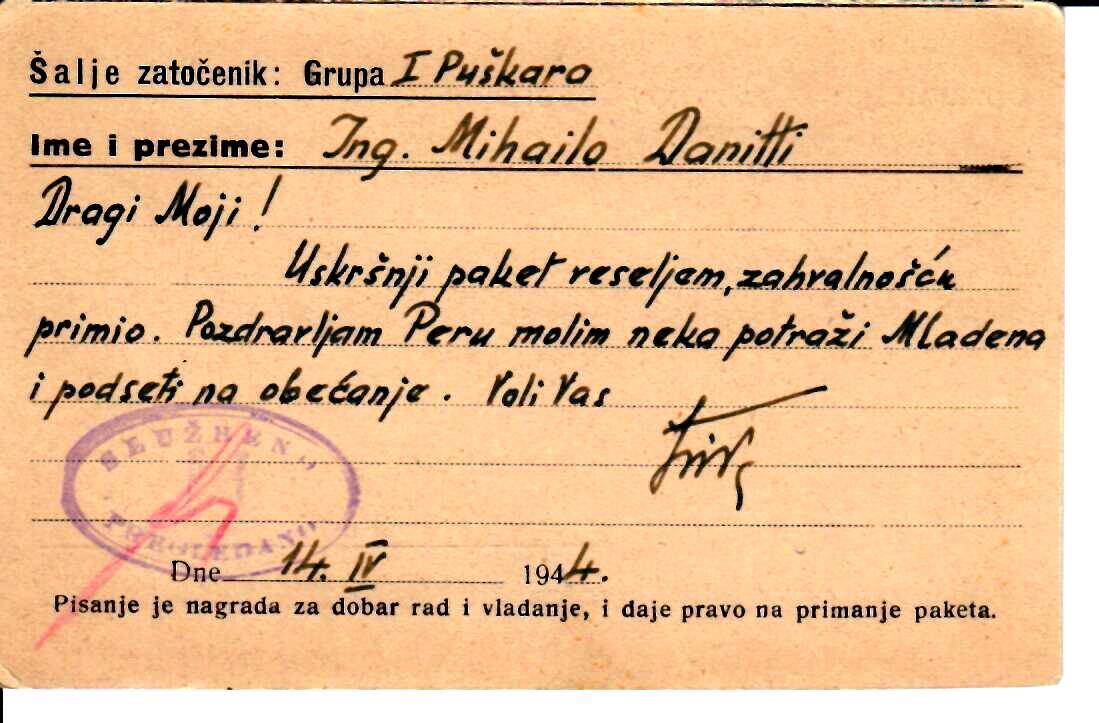 Šalje zatočenik: Grupa I Puškara
Ime i prezime: Ing. Mihailo Danitti
Dragi Moji!
Uskršnji paket veseljem, zahvalnošću
primio. Pozdravljam Peru molim neka potraži Mladena
i podseti na obećanje. Voli Vas
SLUŽBENO
PREGLEDANO
Dne 14. IV 1944.
Pisanje je nagrada za dobar rad i vladanje, i daje pravo na primanje paketa.